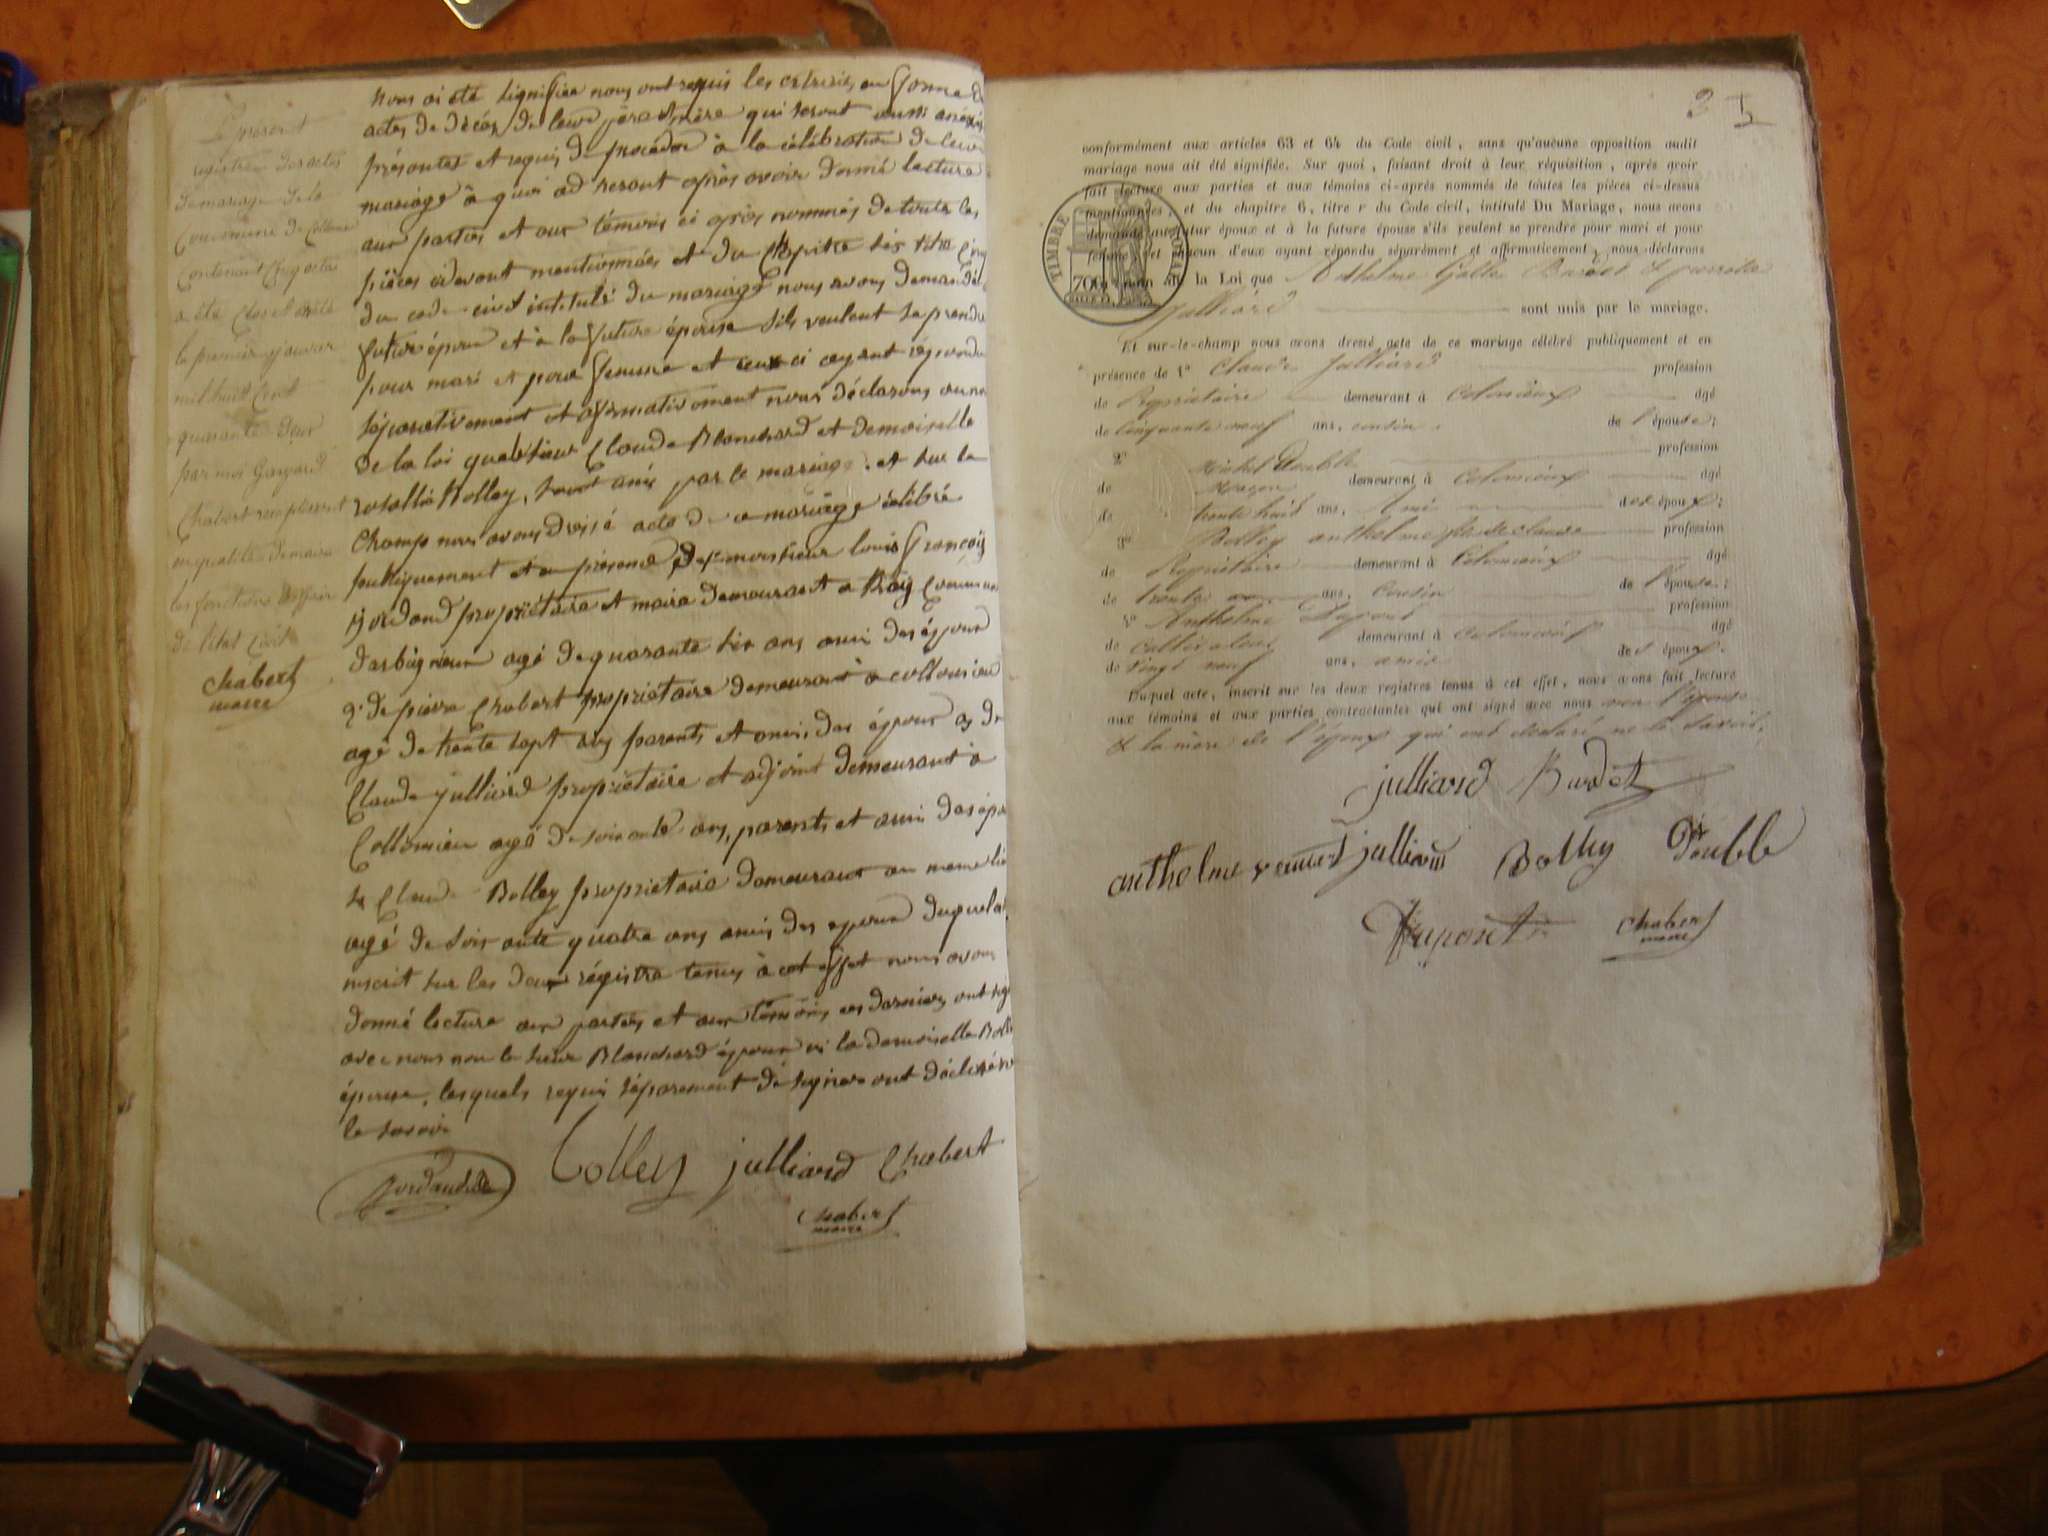 Le présent
registre des actes
de mariage de la
Commune de Collomieu
Contenant Cinq actes
a été Clos et arrêté
le premier janvier
mil huit Cent
quarante deux
par moi Gaspard
Chabert remplissant
en qualité de maire
les fonctions d'officier
de l'état Civil
Chabert
maire
nous ai été signifiée nous ont requis les extraits en forme d
actes de décès de leurs père et mère qui seront aussi
présentes et requis de procéder à la célébration de leur
mariage à quoi ad herant après avoir donné lecture
aux parties et aux témoins ci après nommés de toutes les
pièces cidevant mentionnées et du Chapitre six titre Cinq
du code civil intitulé du mariage nous avons demandé
futur époux et à la future épouse s'ils veulent se prendre
pour mari et pour femme et ceux ci ayant répondu
séparativement et affirmativement nous déclarons au nom
de la loi que le sieur Claude Blanchard et demoiselle
rosallie Bolley, sont unis par le mariage. et sur le
Champ nous avons dressé acte de ce mariage célébré
publiquement et en présence de monsieur louis françois
propriétaire et maire demeurant a Commune
darbignieu agé de quarante six ans ami des époux
2° de pierre Chabert propriétaire demeurant à collomieu
agé de trente sept ans parents et ami des époux 3° de
Claude julliard propriétaire et adjoint demeurant à
Collomieu agé de soixante ans, parents et ami des épou
4° Claude Bolley propriétaire demeurant au meme lieu
agé de soixante quatre ans amis des époux duquel a
inscrit sur les deux régistre tenus à cet effet nous avons
donné lecture aux parties et aux témoins ces derniers ont sig
avec nous non le sieur Blanchard époux ni la demoiselle Boll
épouse, lesquels requis séparement de signer ont déclaré n
le savoir
Bolley julliard Chabert
Chabert
maire
3
conformément aux articles 63 et 64 du Code civil, sans qu'aucune opposition audit
mariage nous ait été signifiée. Sur quoi, faisant droit à leur réquisition, après avoir
fait lecture aux parties et aux témoins ci-après nommés de toutes les pièces ci-dessus
mentionnées, et du chapitre 6, titre v du Code civil, intitulé Du Mariage, nous avons
demandé au futur époux et à la future épouse s'ils veulent se prendre pour mari et pour
femme, et chacun d'eux ayant répondu séparément et affirmativement, nous déclarons
TIMBRE ROYAL
70
au nom de la Loi que Anthelme Burdet & pierrette
Julliard sont unis par le mariage.
Et sur-le-champ nous avons dressé acte de ce mariage célébré publiquement et en
présence de 1° Claude Julliard profession
de Propriétaire demeurant à Colomieux âgé
de Cinquante neuf ans, cousin de l'épouse;
2° Michel Double profession
de Maçon demeurant à Colomieux âgé
de trente huit ans, ami des époux;
3° Bolley anthelme fils de claude profession
de Propriétaire demeurant à Colomieux âgé
de trente ans, Cousin de l'épouse;
4° Anthelme Dupont profession
de Cultivateur demeurant à Colomieux âgé
de vingt neuf ans, amis des époux.
Duquel acte, inscrit sur les deux registres tenus à cet effet, nous avons fait lecture
aux témoins et aux parties contractantes qui ont signé avec nous non l'épouse
& la mère de l'époux qui ont déclaré ne le savoir.
julliard Burdet
anthelme julliard Bolley Double
Dupont Chabert
maire